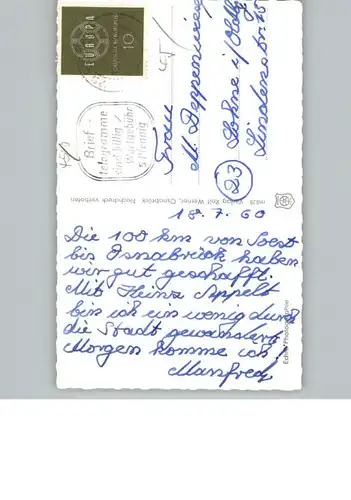 18.7.60
Die 100 km von Soest
bis Osnabrück haben
wir gut geschafft.
Mit Heinz Appelt
bin ich ein wenig durch
die Stadt gewandert.
Morgen komme ich!
Manfred
EUROPA
10
Brief-
telegramme
sind billig /
Wortgebühr
5 Pfennig
Frau
M.
Lohne i/Oldbg
Lindenstr.
(23)
Verlag Rolf Werner, Osnabrück Nachdruck verboten
Echte Photographie